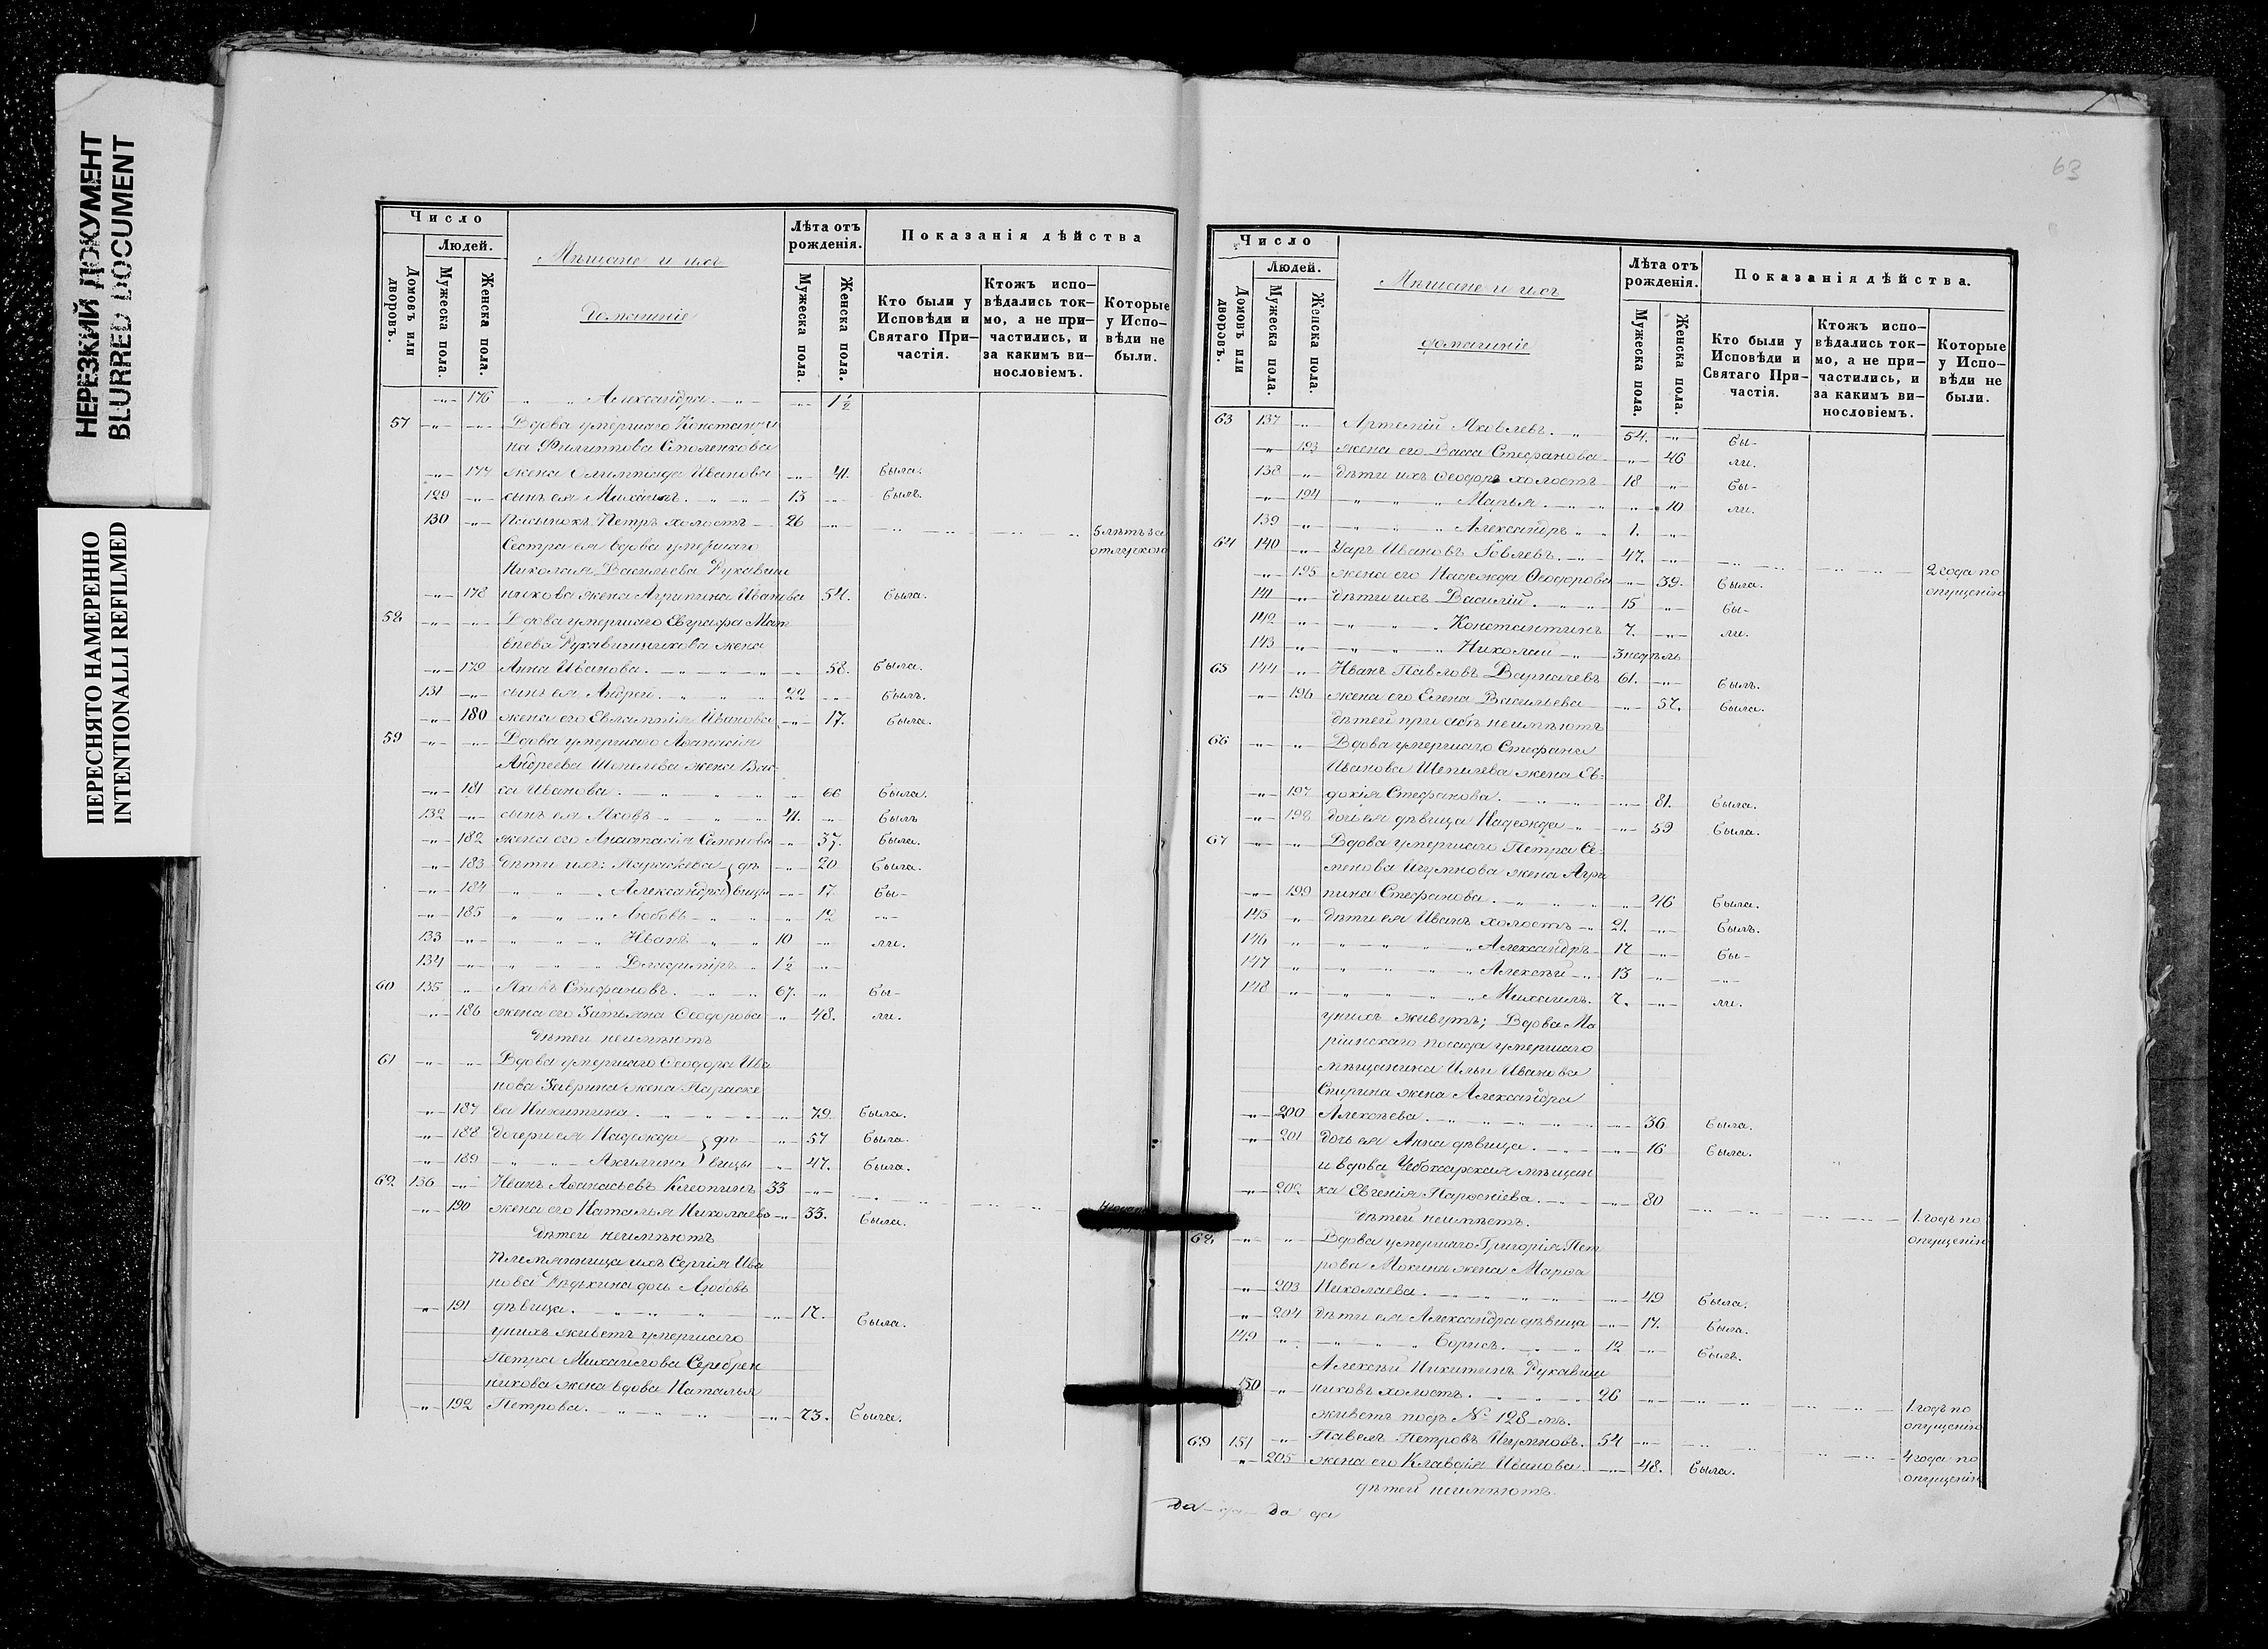 НЕРЕЗКИЙ ДОКУМЕНТ
BLURRED DOCUMENT
ПЕРЕСНЯТО НАМЕРЕННО
INTENTIONALLI REFILMED
Число
Людей.
Домовъ или дворовъ.
Мужеска пола.
Женска пола.
Мѣщане и ихъ
домашніе
Лѣта отъ рожденія.
Мужеска пола.
Женска пола.
Показанія дѣйства
Кто были у Исповѣди и Святаго При-частія.
Ктожъ испо-вѣдались ток-мо, а не при-частились, и за какимъ ви-нословіемъ.
Которые у Испо-вѣди не были.
176 Александра 1½
57 Вдова умершаго Константи
на Филиппова Столенкова
177 жена Олимпіада Иванова 41. была.
129 сынъ ея Михаилъ 13 былъ.
130 Пасынокъ Петръ холостъ 26 5 лѣтъ за
отлучкою
Сестра ея вдова умершаго
Николая Васильева Рукавиш
178 никова жена Агрипина Иванова 54. была.
58 Вдова умершаго Евграфа Мат
вѣева Рукавишникова жена
179 Анна Иванова 58. была.
131 сынъ ея Андрей 22 былъ.
180 жена его Евлампія Иванова 17. была.
59 Вдова умершаго Аѳанасія
Андреева Шепелева жена Вас-
181 са Иванова 66 была.
132 сынъ ея Яковъ 41. былъ
182 жена его Анастасія Семенова 37. была.
183 дѣти ихъ: Параскева дѣ 20 была.
184 Александра вицы 17 бы-
185 Любовь 12
133 Иванъ 10 ли.
134 Владиміръ 1½
60 135 Яковъ Стефановъ 67. бы-
186 жена его Татьяна Ѳеодорова 48. ли.
дѣтей неимѣютъ
61 Вдова умершаго Ѳеодора Ива
нова Гаврина жена Параске
187 ва Никитина 79 была.
188 дочери ея Надежда дѣ 57 была.
189 Акилина вицы 47. была.
62 136 Иванъ Аѳанасьевъ Клеопинъ 33
190 жена его Наталья Николаева 33. была.
дѣтей неимѣютъ
Племянница ихъ Сергія Ива
нова дочь Любовь
191 дѣвица 17. была.
у нихъ живетъ умершаго
Петра Михайлова Серебрен
никова жена вдова Наталья
192 Петрова 73. была.
63
Число
Людей.
Домовъ или дворовъ.
Мужеска пола.
Женска пола.
Мѣщане и ихъ
домашніе
Лѣта отъ рожденія.
Мужеска пола.
Женска пола.
Показанія дѣйства.
Кто были у Исповѣди и Святаго При-частія.
Ктожъ испо-вѣдались ток-мо, а не при-частились, и за какимъ ви-нословіемъ.
Которые у Испо-вѣди не были.
63 137 Артемій Яковлевъ 54. бы-
193 жена его Васса Стефанова 46 ли.
138 дѣти ихъ Ѳеодоръ холостъ 18 бы-
194 Марья 10 ли.
139 Александръ 1.
64 140 Уаръ Ивановъ Іовлевъ 47. 2 года по
опущенію
195 жена его Надежда Ѳеодорова 39. была.
141 дѣти ихъ Василій 15 бы-
142 Константинъ 7. ли.
143 Николай 3 недѣль
65 144 Иванъ Павловъ Варначевъ 61. былъ.
196 жена его Елена Васильева 57. была.
дѣтей при себѣ неимѣютъ
66 Вдова умершаго Стефана
Иванова Шепелева жена Ев-
197 докія Стефанова 81. была.
198 дочь ея дѣвица Надежда 59 была.
67 Вдова умершаго Петра Се-
менова Игумнова жена Агри
199 пина Стефанова 46 была.
145 дѣти ея Иванъ холостъ 21. былъ.
146 Александръ 17 бы-
147 Алексѣй 13
148 Михаилъ 7. ли.
у нихъ живутъ; Вдова Ма
ріинскаго посада умершаго
мѣщанина Ильи Иванова
Спирина жена Александра
200 Алексѣева 36 была.
201 дочь ея Анна дѣвица 16 была.
и вдова Чебоксарская мѣщан
202 ка Евгенія Парѳеніева 80 1. годъ по
дѣтей неимѣетъ. опущенію
68 Вдова умершаго Григорія Пет
рова Мокина жена Марѳа
203 Николаева 49 была.
204 дѣти ея Александра дѣвица 17. была.
149 Борисъ 12 былъ.
Алексѣй Никитинъ Рукавиш
150 никовъ холостъ 26 1. годъ по
живетъ подъ № 128-мъ. опущенію
69 151 Павелъ Петровъ Игумновъ. 54 4 года по
205 жена его Клавдія Иванова 48. была. опущенію
дѣтей неимѣютъ.